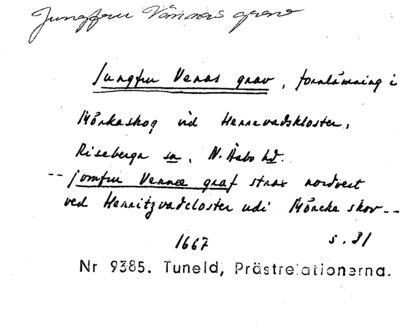 Jungfru Vännās grav
Jungfru Venas grav, fornlämning i
Mörkaskog vid Herrevadskloster,
Riseberga sn, N. Åsbo hd.
-- jomfru Vennæ graf strax nordvest
ved Herritzvadcloster udi Mörcke skov --
1667 s. 31
Nr 9385. Tuneld, Prästrelationerna.